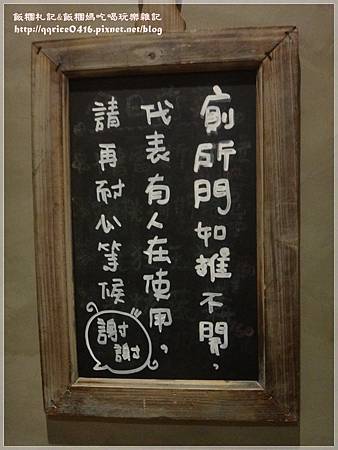 飯糰札記&飯糰媽吃喝玩樂雜記
http://qqrice0416.pixnet.net/blog
廁所門如推不開,
代表有人在使用。
請再耐心等候
謝謝